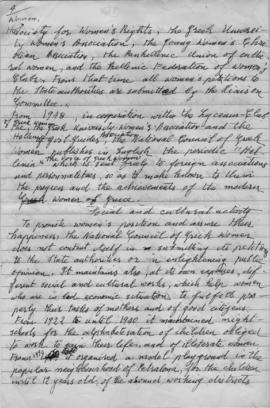 4
Women,
Society for Women's Rights, the Greek Univer-
sity Women's Association, the Young Women's Chris-
tian Association, the Panhellenic Union of
ral women, and the Hellenic Federation of Women's
Clubs. From that time all women's petitions to
the State authorities are submitted by the Liaison
Committee.
From 1948, in cooperation with the Lyceum-Club
of Greek Women
the Greek University Women's Association and the
Hellenic Association
of girl guides, the National Council of Greek
Women publishes in the periodic "Hel-
lenis" which is sent gratis to foreign associations
The Voice of Greek Women
and personalities, so as to make known to them
the progress and the achievements of the modern
Greek women of Greece.
Social and cultural activity
To promote women's position and assure their
happiness the National Council of Greek Women
does not content itself in submitting its petitions
to the State authorities or in enlightening public
opinion. It maintains also, at its own expenses, dif-
ferent social and cultural works, which help women
who are in bad economic situation to fulfill pro
perly their tasks of mothers and of good citizens.
From 1922 until 1940 it maintained night-
schools for the alphabetisation of children obliged
to work to earn their life, and of illiterate women.
From 1939 it organised a model playground in the
popular neighbourhood of Petralona, for the children
until 12 years old, of the